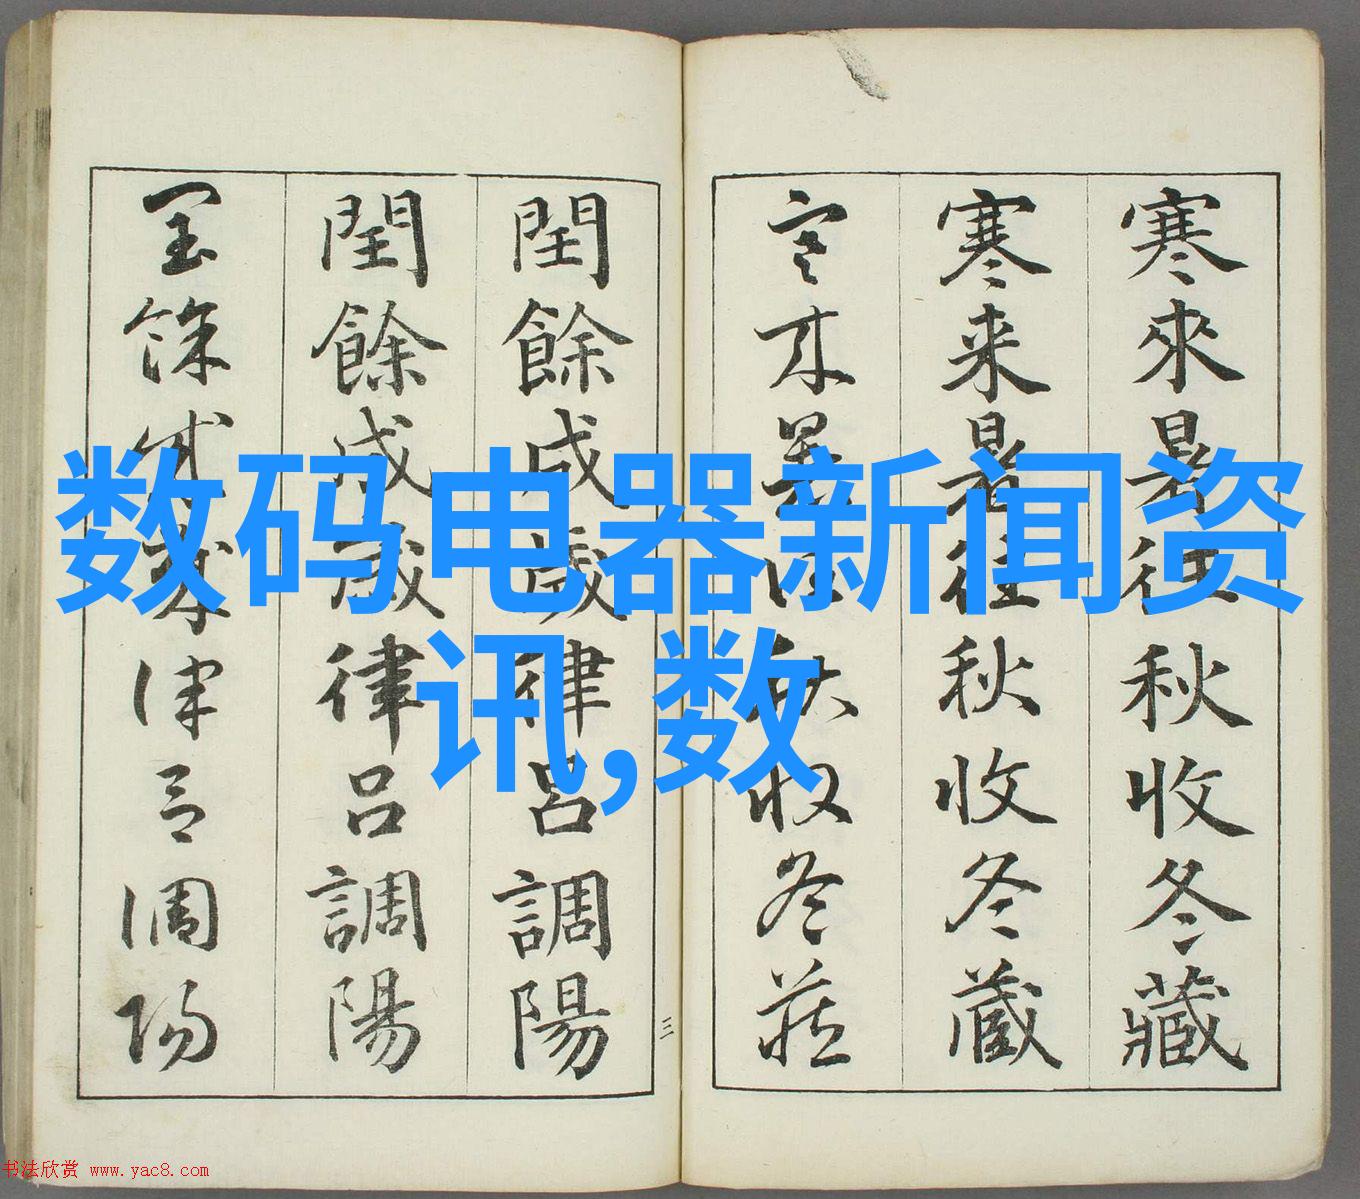 寒來暑往秋收冬藏
寒来暑往秋收冬蔵
寒来暑往秋收冬藏
閏餘成歲律呂調陽
閏餘成歲律呂調陽
閏餘成歲律呂調陽
三
数码电器新闻资
讯,数
书法欣赏 www.yac8.com